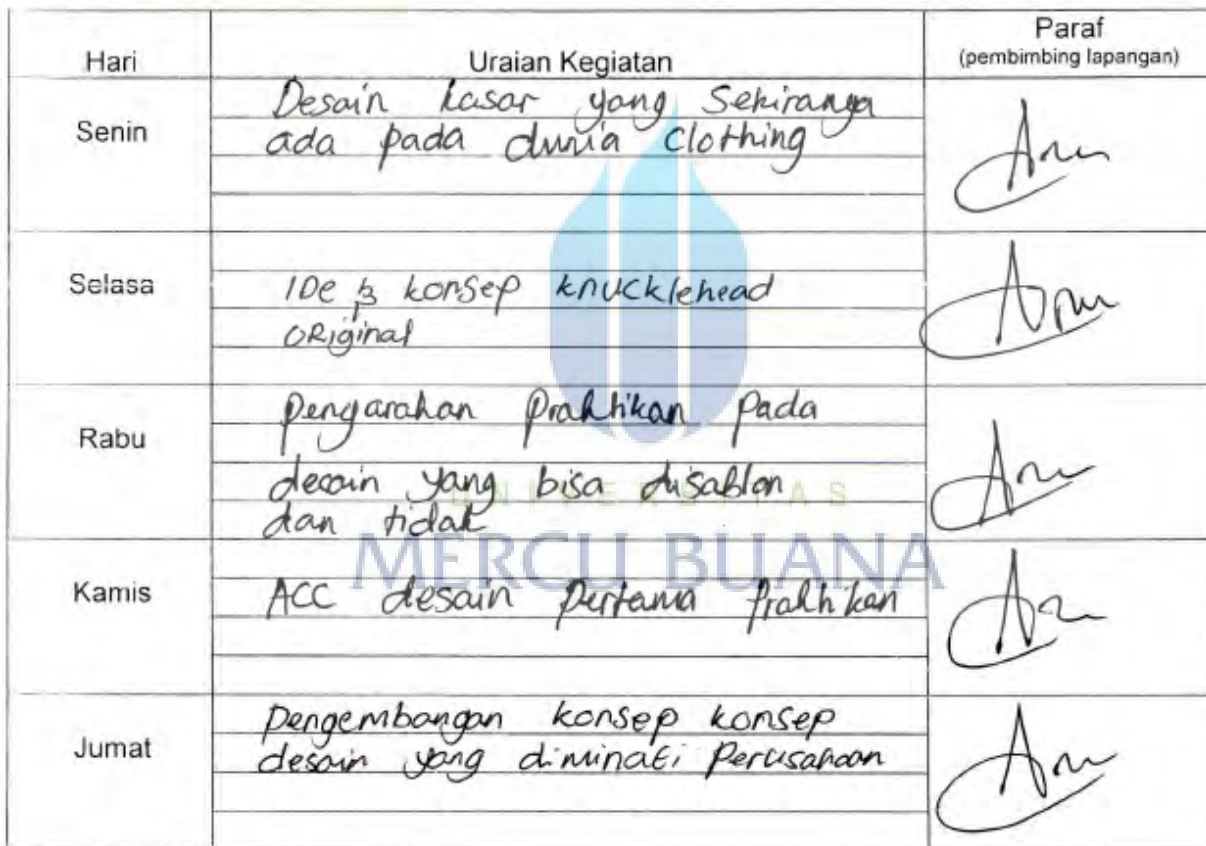 Hari Uraian Kegiatan Paraf
(pembimbing lapangan)
Senin
Desain kasar yang Sekiranya
ada pada dunia Clothing
Selasa
IDe & konsep knucklehead
ORiginal
Rabu
Pengarahan Praktikan Pada
desain yang bisa disablon
dan tidak
UNIVERSITAS
MERCU BUANA
Kamis
ACC desain Pertama Praktikan
Jumat
Pengembangan konsep konsep
desain yang diminati Perusahaan